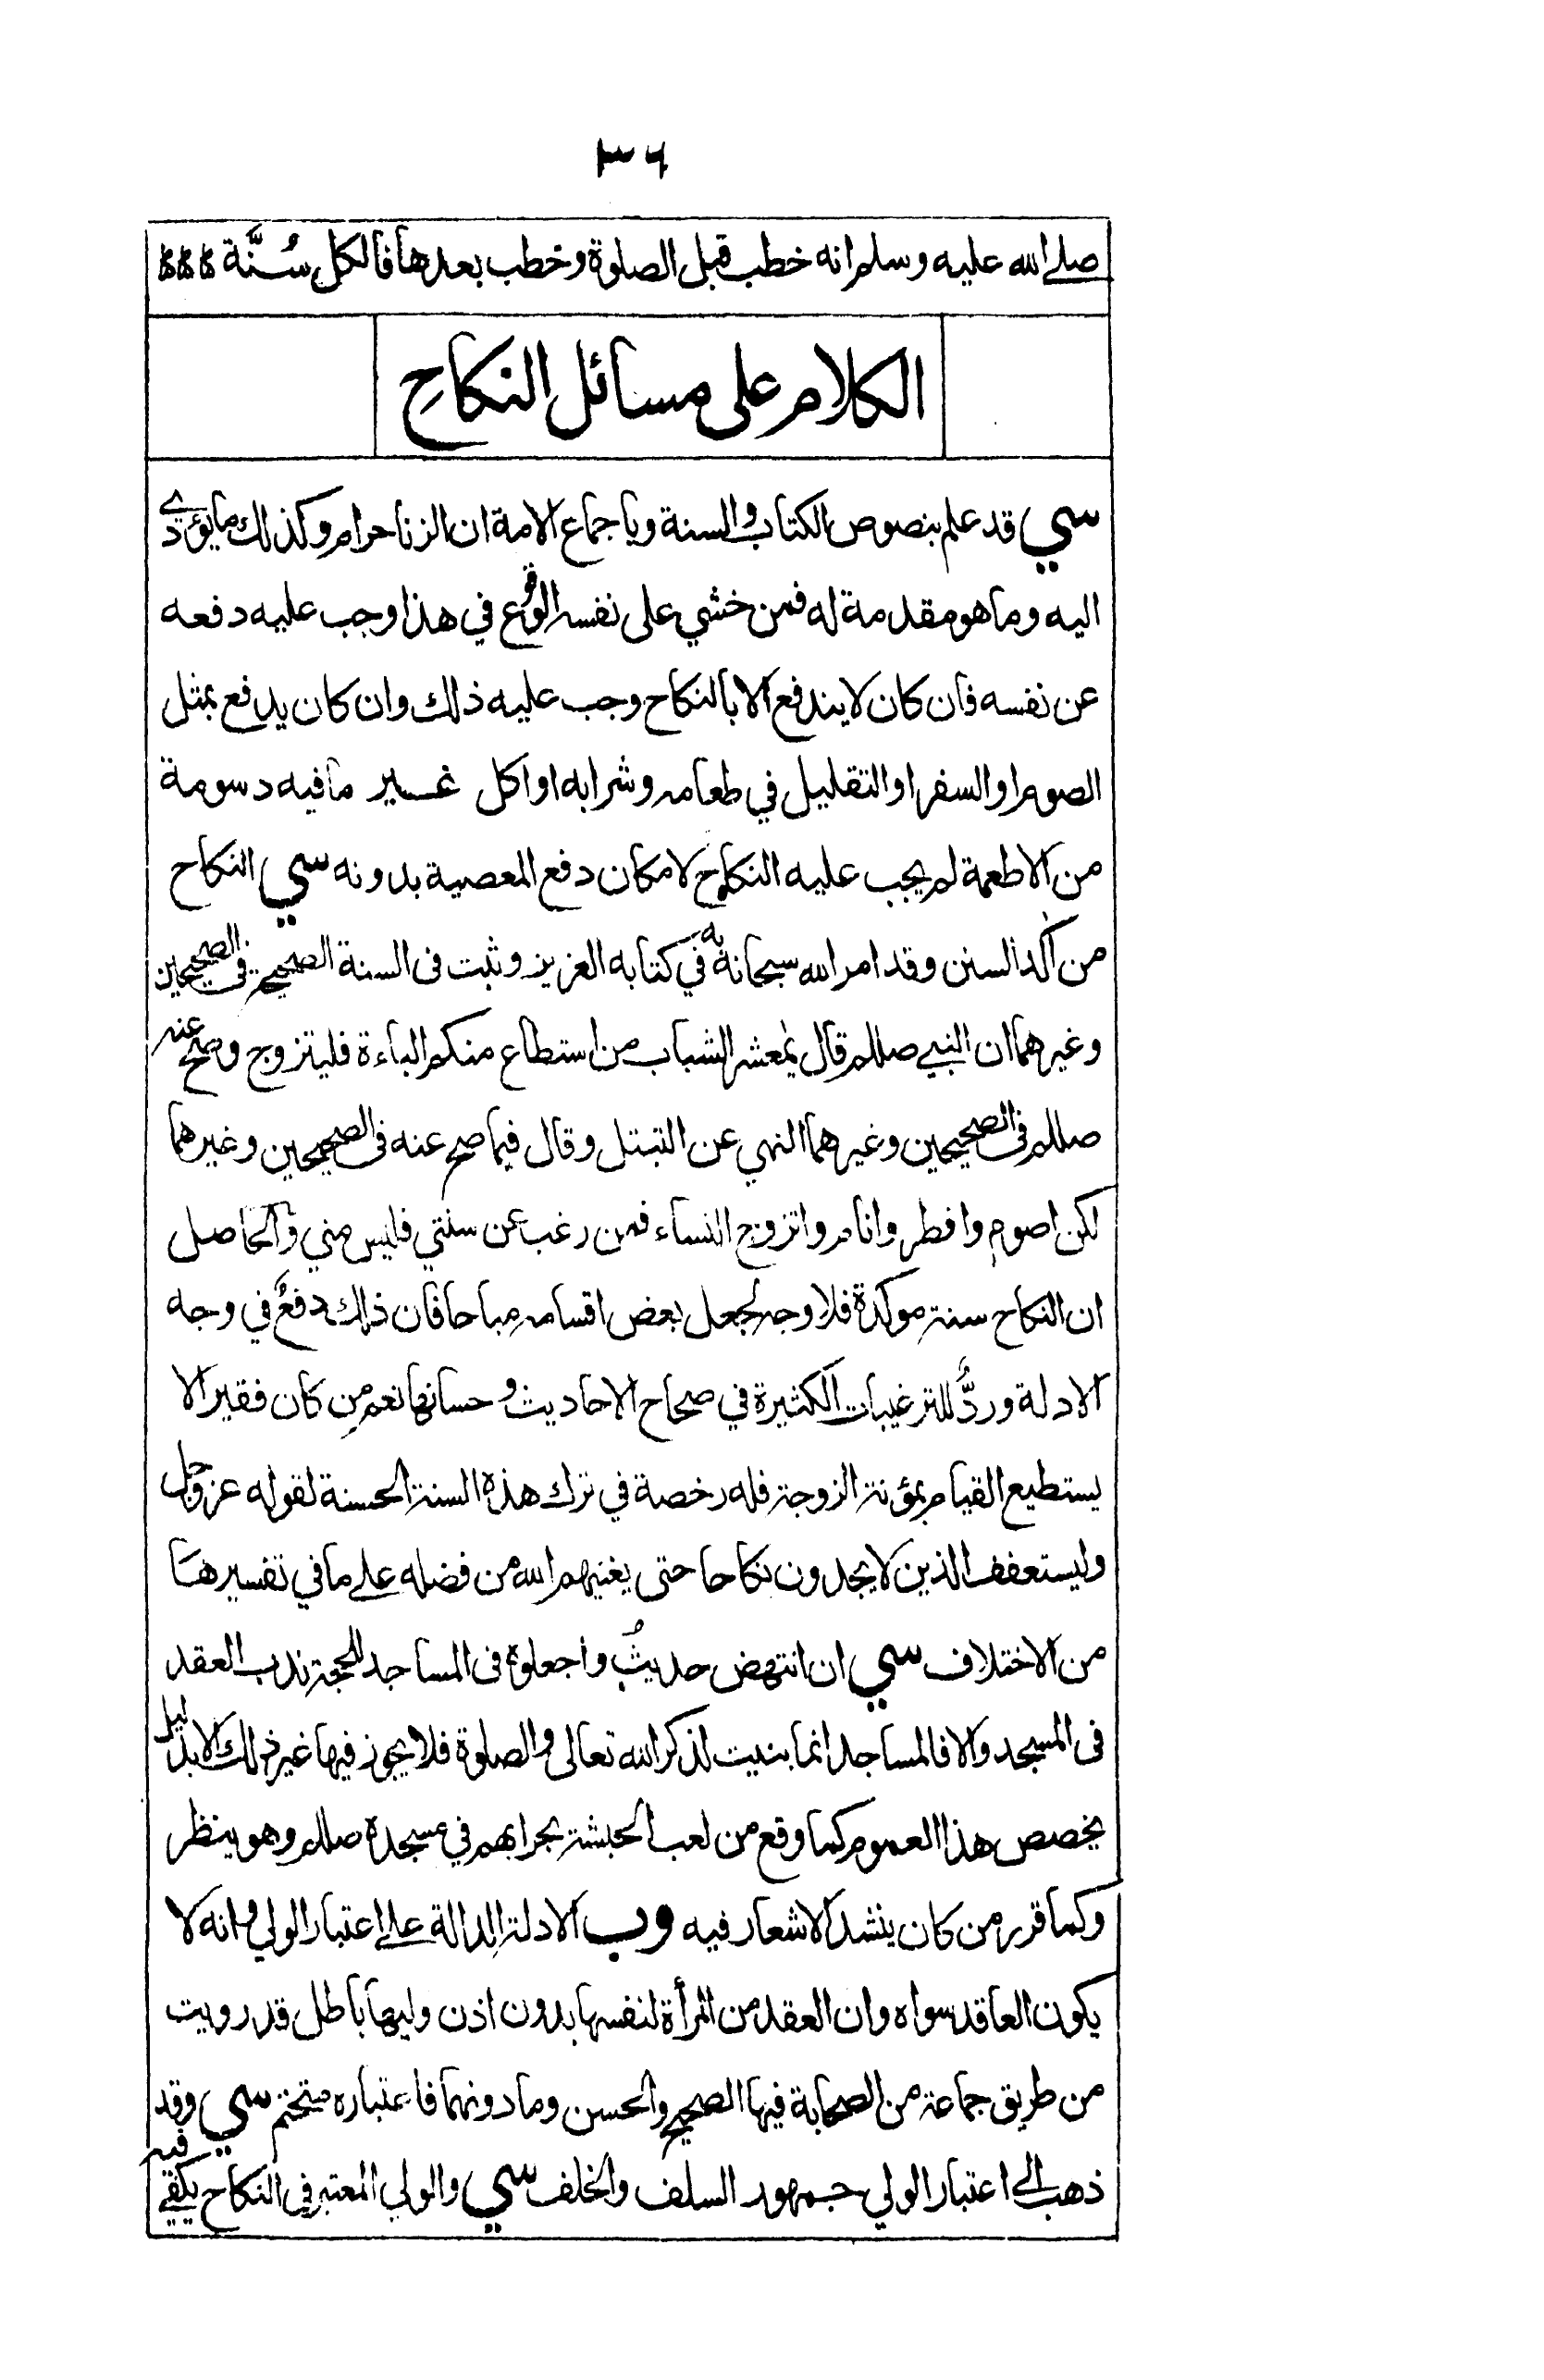 ٣٦
صلے الله عليه وسلم انه خطب قبل الصلوة وخطب بعدها فالكل سُنَّة
الكلام على مسائل النكاح
سي قد علم بنصوص الكتاب والسنة وباجماع الامة ان الزنا حرام وكذلك ما يؤدے
اليه وما هو مقدمة له فمن خشي على نفسه الوقوع في هذا وجب عليه دفعه
عن نفسه فان كان لا يندفع الا بالنكاح وجب عليه ذلك وان كان يدفع بمثل
الصوم او السفر او التقليل في طعامه وشرابه او اكل غير ما فيه دسومة
من الاطعمة لم يجب عليه النكاح لامكان دفع المعصية بدونه سي النكاح
من آكد السنن وقد امر الله سبحانه به في كتابه العزيز وثبت فى السنة الصحيحة فى الصحيحين
وغيرهما ان النبي صللم قال يٰمعشر الشباب من استطاع منكم الباءة فليتزوج وصح عنه
صللم فى الصحيحين وغيرهما النهي عن التبتل وقال فيما صح عنه فى الصحيحين وغيرهما
لكن اصوم وافطر وانام واتزوج النساء فمن رغب عن سنتي فليس مني والحاصل
ان النكاح سنة موكدة فلا وجه لجعل بعض اقسامه مباحا فان ذلك دفعٌ في وجه
الادلة وردٌّ للترغيبات الكثيرة في صحاح الاحاديث وحسانها نعم من كان فقيرا لا
يستطيع القيام بمؤنة الزوجة فله رخصة في ترك هذه السنة الحسنة لقوله عز وجل
وليستعفف الذين لا يجدون نكاحا حتى يغنيهم الله من فضله علے ما في تفسيرها
من الاختلاف سي ان انتهض حديثُ واجعلوه فى المساجد للحجة ندب العقد
فى المسجد والا فالمساجد انما بنيت لذكر الله تعالى والصلوة فلا يجوز فيها غير ذلك الا بدليل
يخصص هذا العموم كما وقع من لعب الحبشة بحرابهم في مسجده صللم وهو ينظر
وكما قرر من كان ينشد الاشعار فيه وب الادلة الدالة علے اعتبار الولي وانه لا
يكون العاقد سواه وان العقد من المرأة لنفسها بدون اذن وليها باطل قد رويت
من طريق جماعة من الصحابة فيها الصحيح والحسن وما دونهما فاعتباره متحتم سي وقد
ذهب الے اعتبار الولي جمهور السلف والخلف سي والولي المعتبر في النكاح يكفے فيه